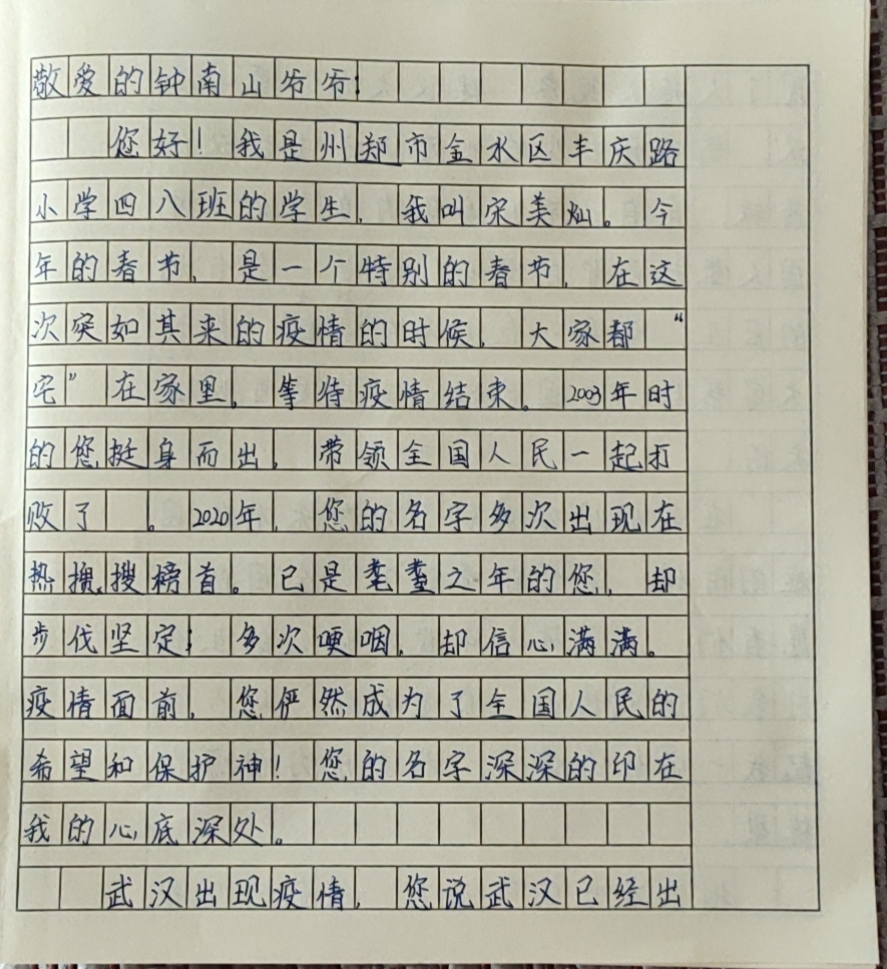 敬爱的钟南山爷爷：
您好！我是州郑市金水区丰庆路
小学四八班的学生，我叫宋美灿。今
年的春节，是一个特别的春节，在这
次突如其来的疫情的时候，大家都“
宅”在家里，等待疫情结束。2003年时
的您挺身而出，带领全国人民一起打
败了 。2020年，您的名字多次出现在
热搜，搜榜首。已是耄耋之年的您，却
步伐坚定；多次哽咽，却信心满满。
疫情面前，您俨然成为了全国人民的
希望和保护神！您的名字深深的印在
我的心底深处。
武汉出现疫情，您说武汉已经出